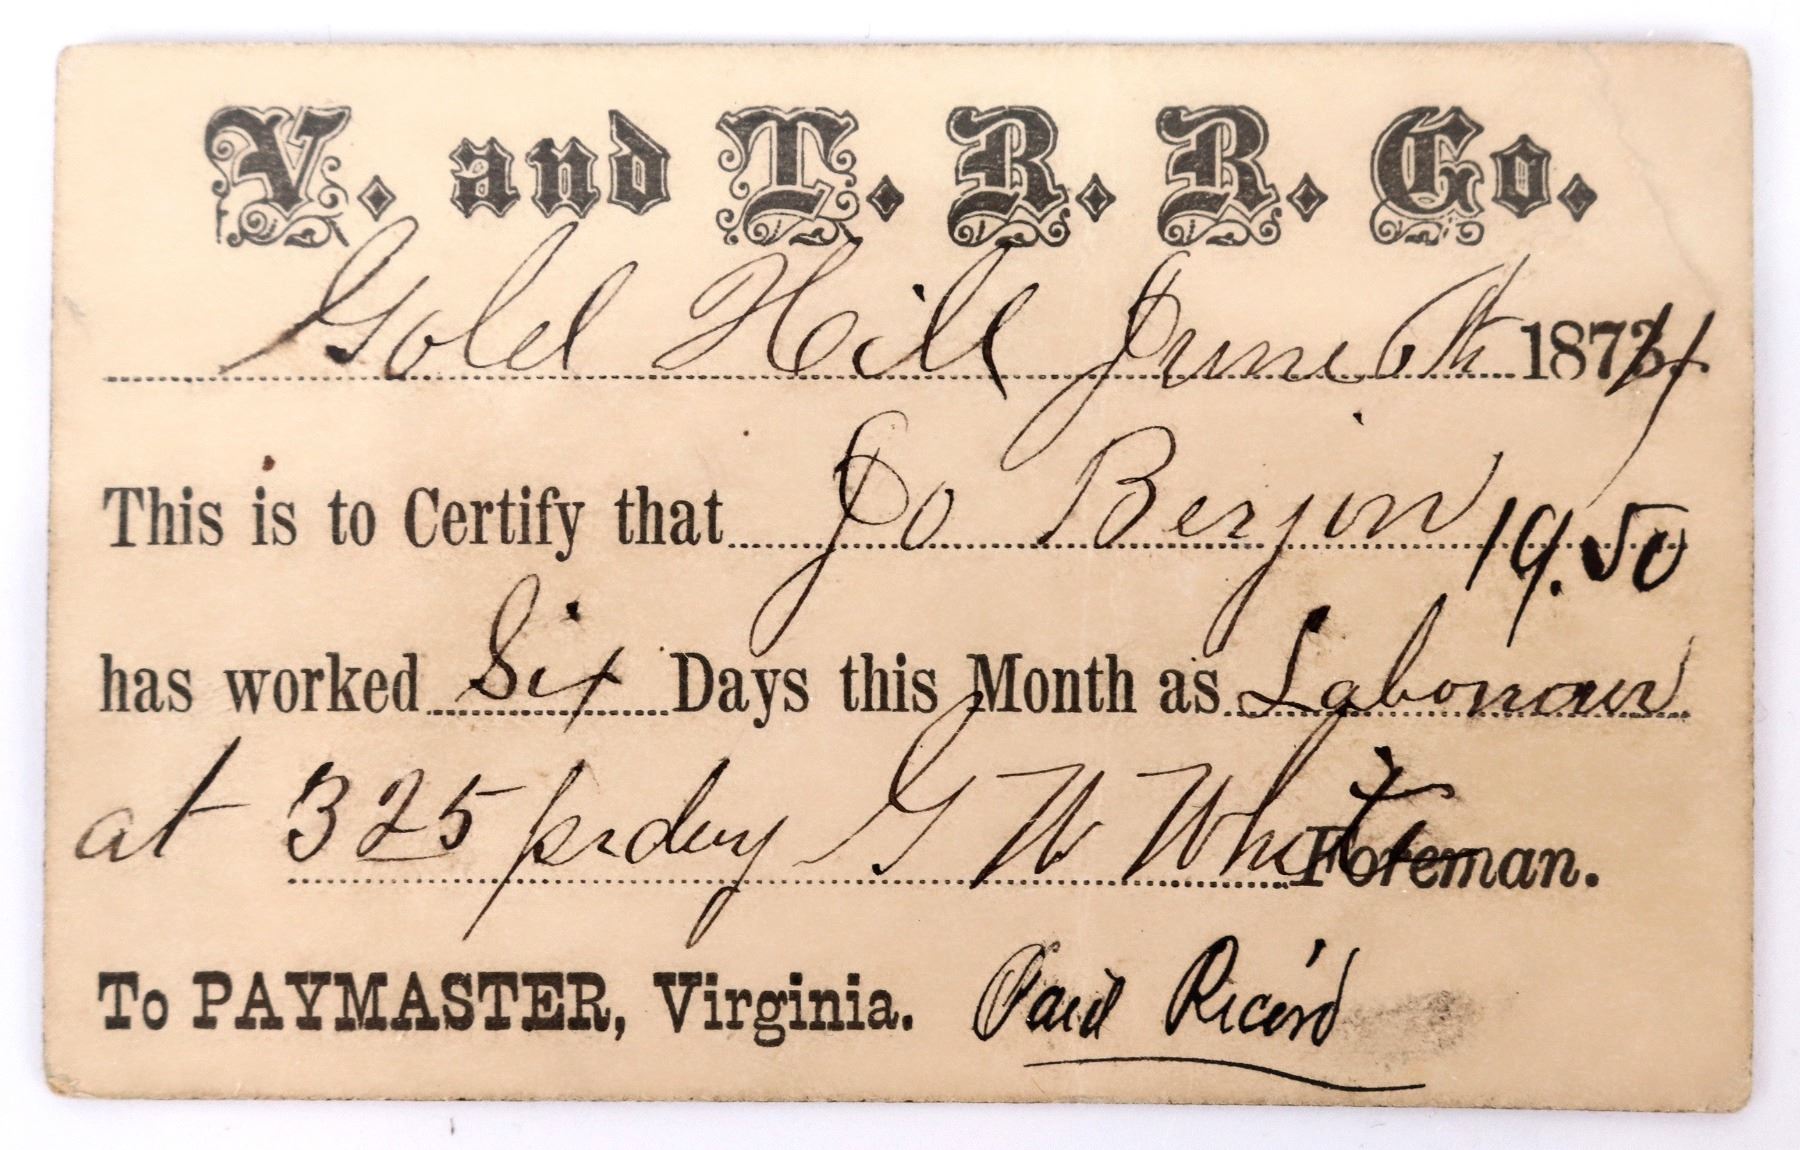 V. and T. R. R. Co.
Gold Hill June 6th 1874
This is to Certify that Jo Berjin 19.50
has worked Six Days this Month as Labourour
at 325 pr day G W White Foreman.
To PAYMASTER, Virginia. Paid Ricord